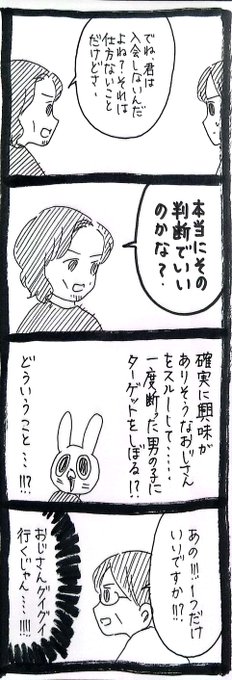 でね、君は
入会しないんだ
よね?それは
仕方ないこと
だけどさ、
本当にその
判断でいい
のかな?
確実に興味が
ありそうなおじさん
をスルーして……
一度断った男の子に
ターゲットをしぼる!?
どういうこと…!!?
あの!!!1つだけ
いいですか!?
おじさんグイグイ
行くじゃん…!!!!